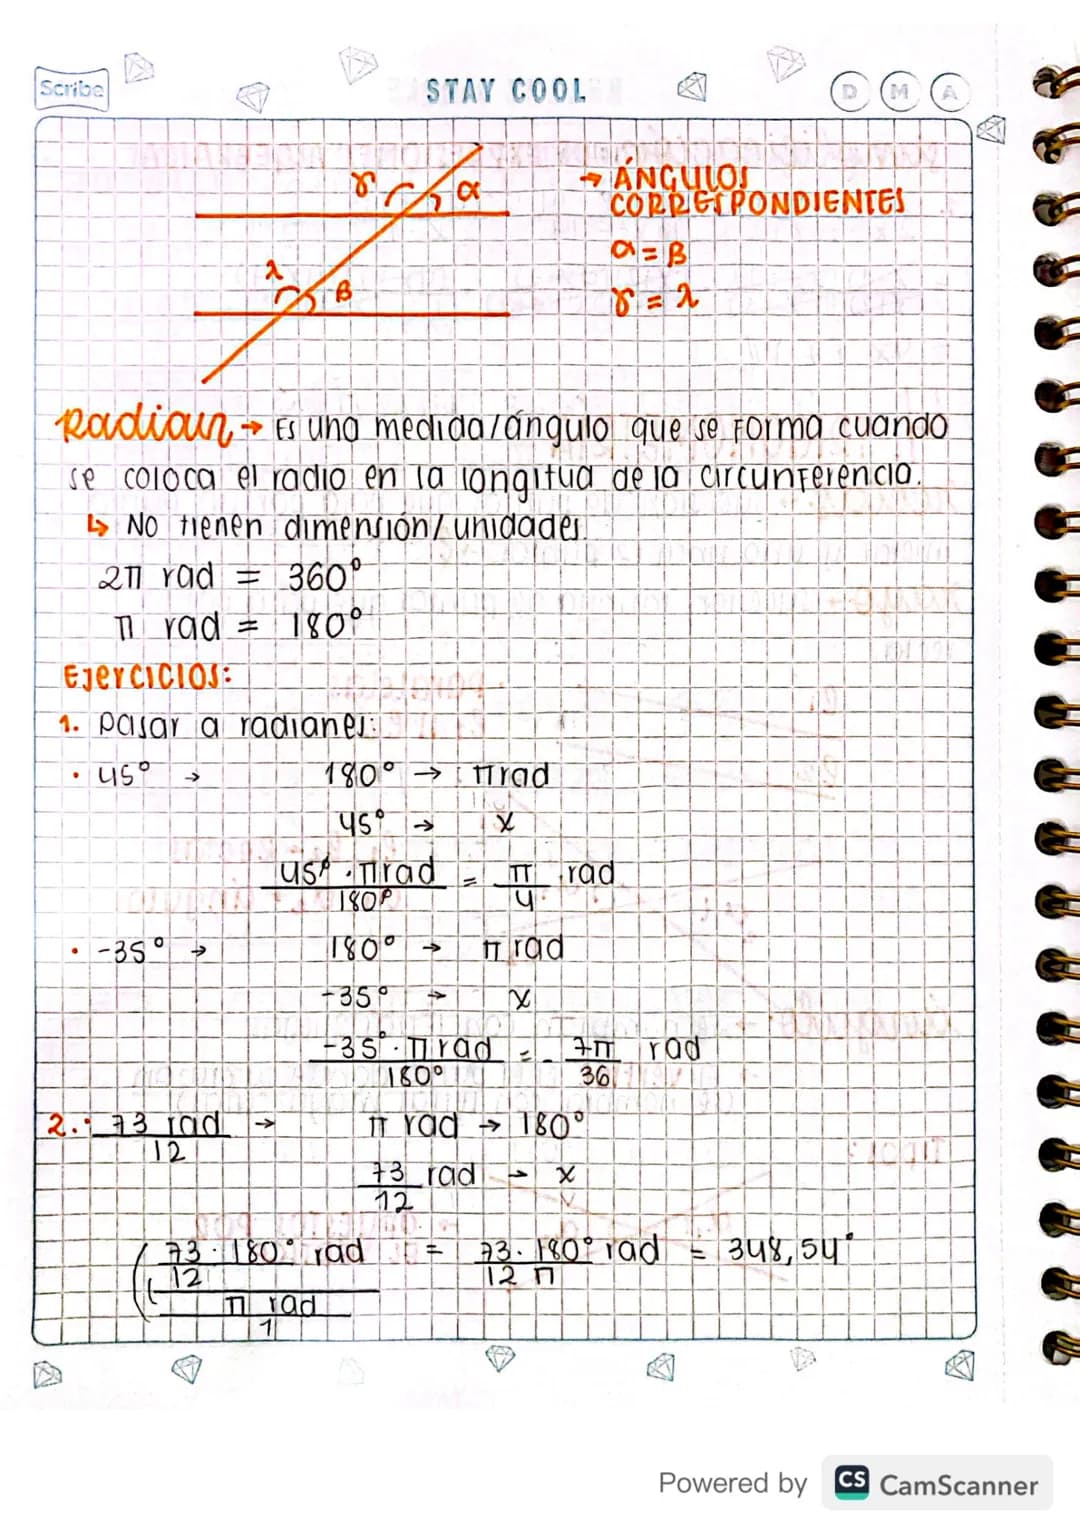 Scribe
STAY COOL
D M A
γ α
→ ÁNGULOS
CORRESPONDIENTES
α = β
γ = λ
λ β
Radian → Es una medida/ángulo que se forma cuando
se coloca el radio en la longitud de la circunferencia.
↳ No tienen dimensión/unidades.
2π rad = 360°
π rad = 180°
Ejercicios:
1. Pasar a radianes:
• 45° → 180° → π rad
45° → x
45° · π rad / 180° = π/4 rad
• -35° → 180° → π rad
-35° → x
-35° · π rad / 180° = - 7π/36 rad
2. • 73 rad / 12 → π rad → 180°
73/12 rad → x
(73/12 · 180° rad) / (π rad / 1) = 73 · 180° rad / 12 π = 348,54°
Powered by CS CamScanner